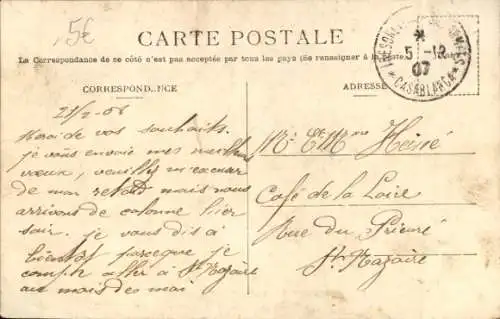 5€
CARTE POSTALE
La Correspondance de ce côté n'est pas acceptée par tous les pays (Se renseigner à la Poste)
TRESOR ET POSTES
5 -12
07
* CASABLANCA *
CORRESPONDANCE
ADRESSE
21/2-08
Merci de vos souhaits.
je vous envoie mes meilleurs
vœux, veuillez m'excuser
de mon retard mais nous
arrivons de colonne hier
soir. je vous dis à
bientôt parceque je
compte aller à St Nazaire
au mois de mai
Mr et Mme
Café de la Loire
Rue du Prieuré
St. Nazaire